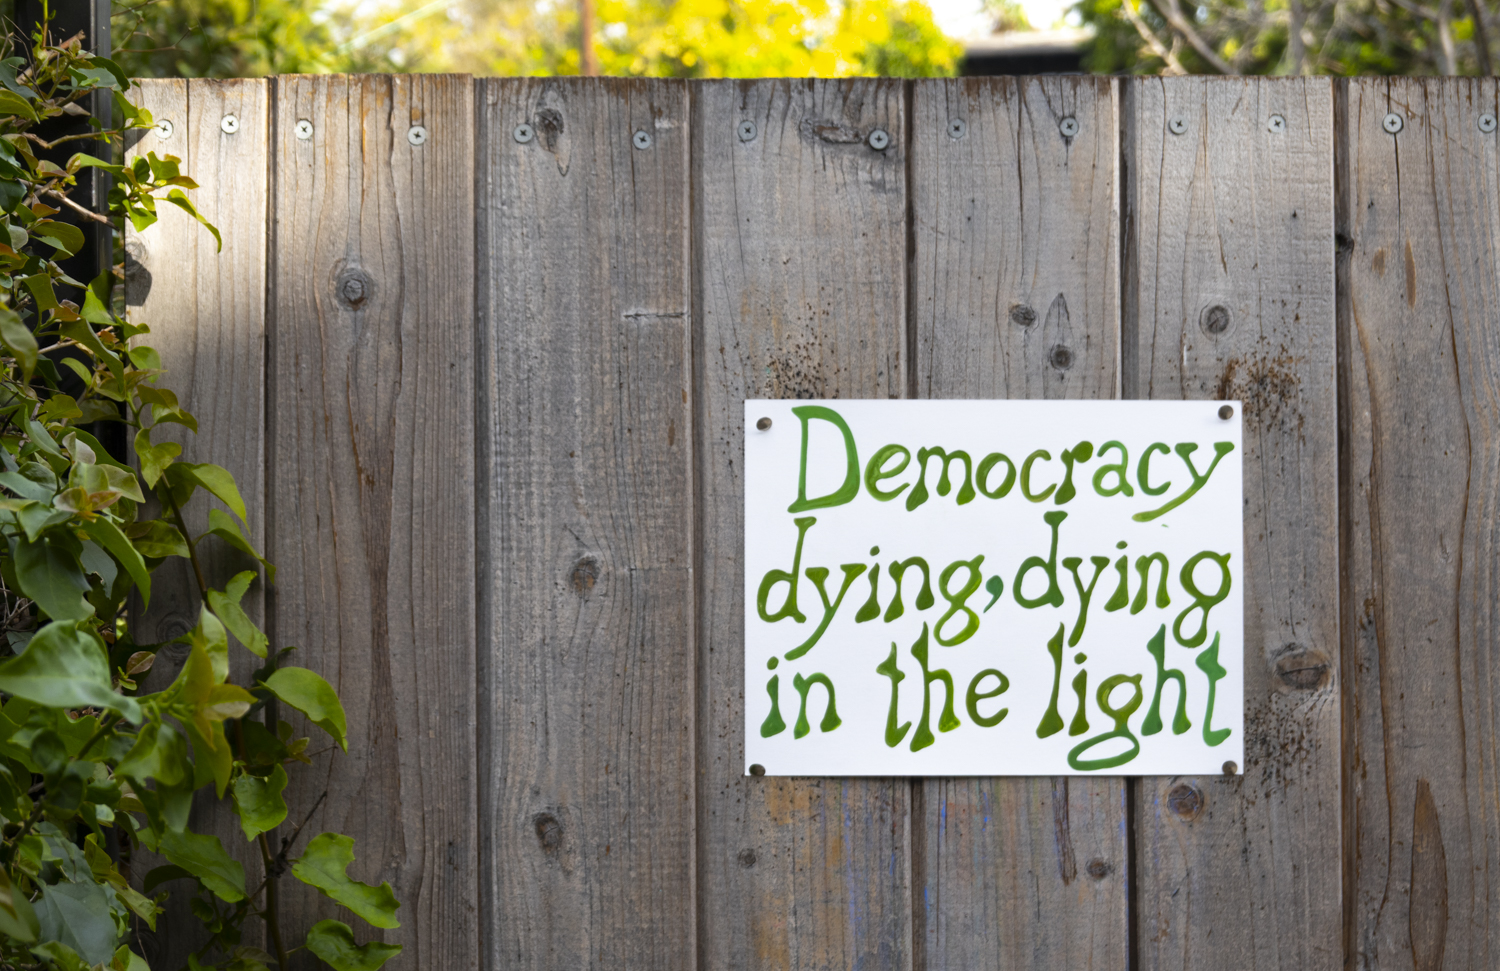 Democracy
dying, dying
in the light